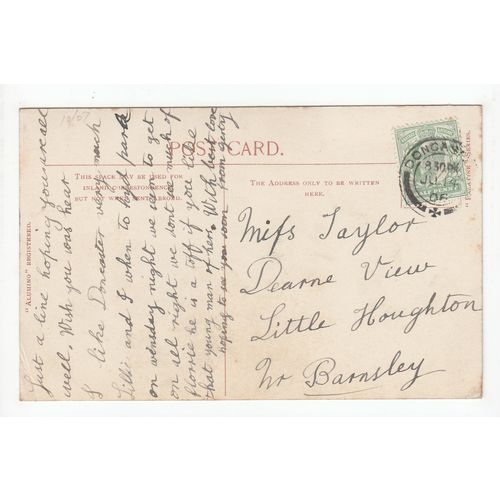 10/07
POST CARD.
THIS SPACE MAY BE USED FOR
INLAND CORRESPONDENCE
BUT NOT WHEN SENT ABROAD.
THE ADDRESS ONLY TO BE WRITTEN
HERE.
"ALUMINO" REGISTERED.
SERIES.
DONCASTER
8 30 PM
06
Just a line hoping you are all
well. Wish you was hear
I like Doncaster very much
Lilli and I when to loyd park
on wensday night we
to get
on all right we dont see much of
florrie he is a toff if you like
that young man of hers. With best love
hoping to see you soon from
Miss Taylor
Dearne View
Little Houghton
Nr Barnsley